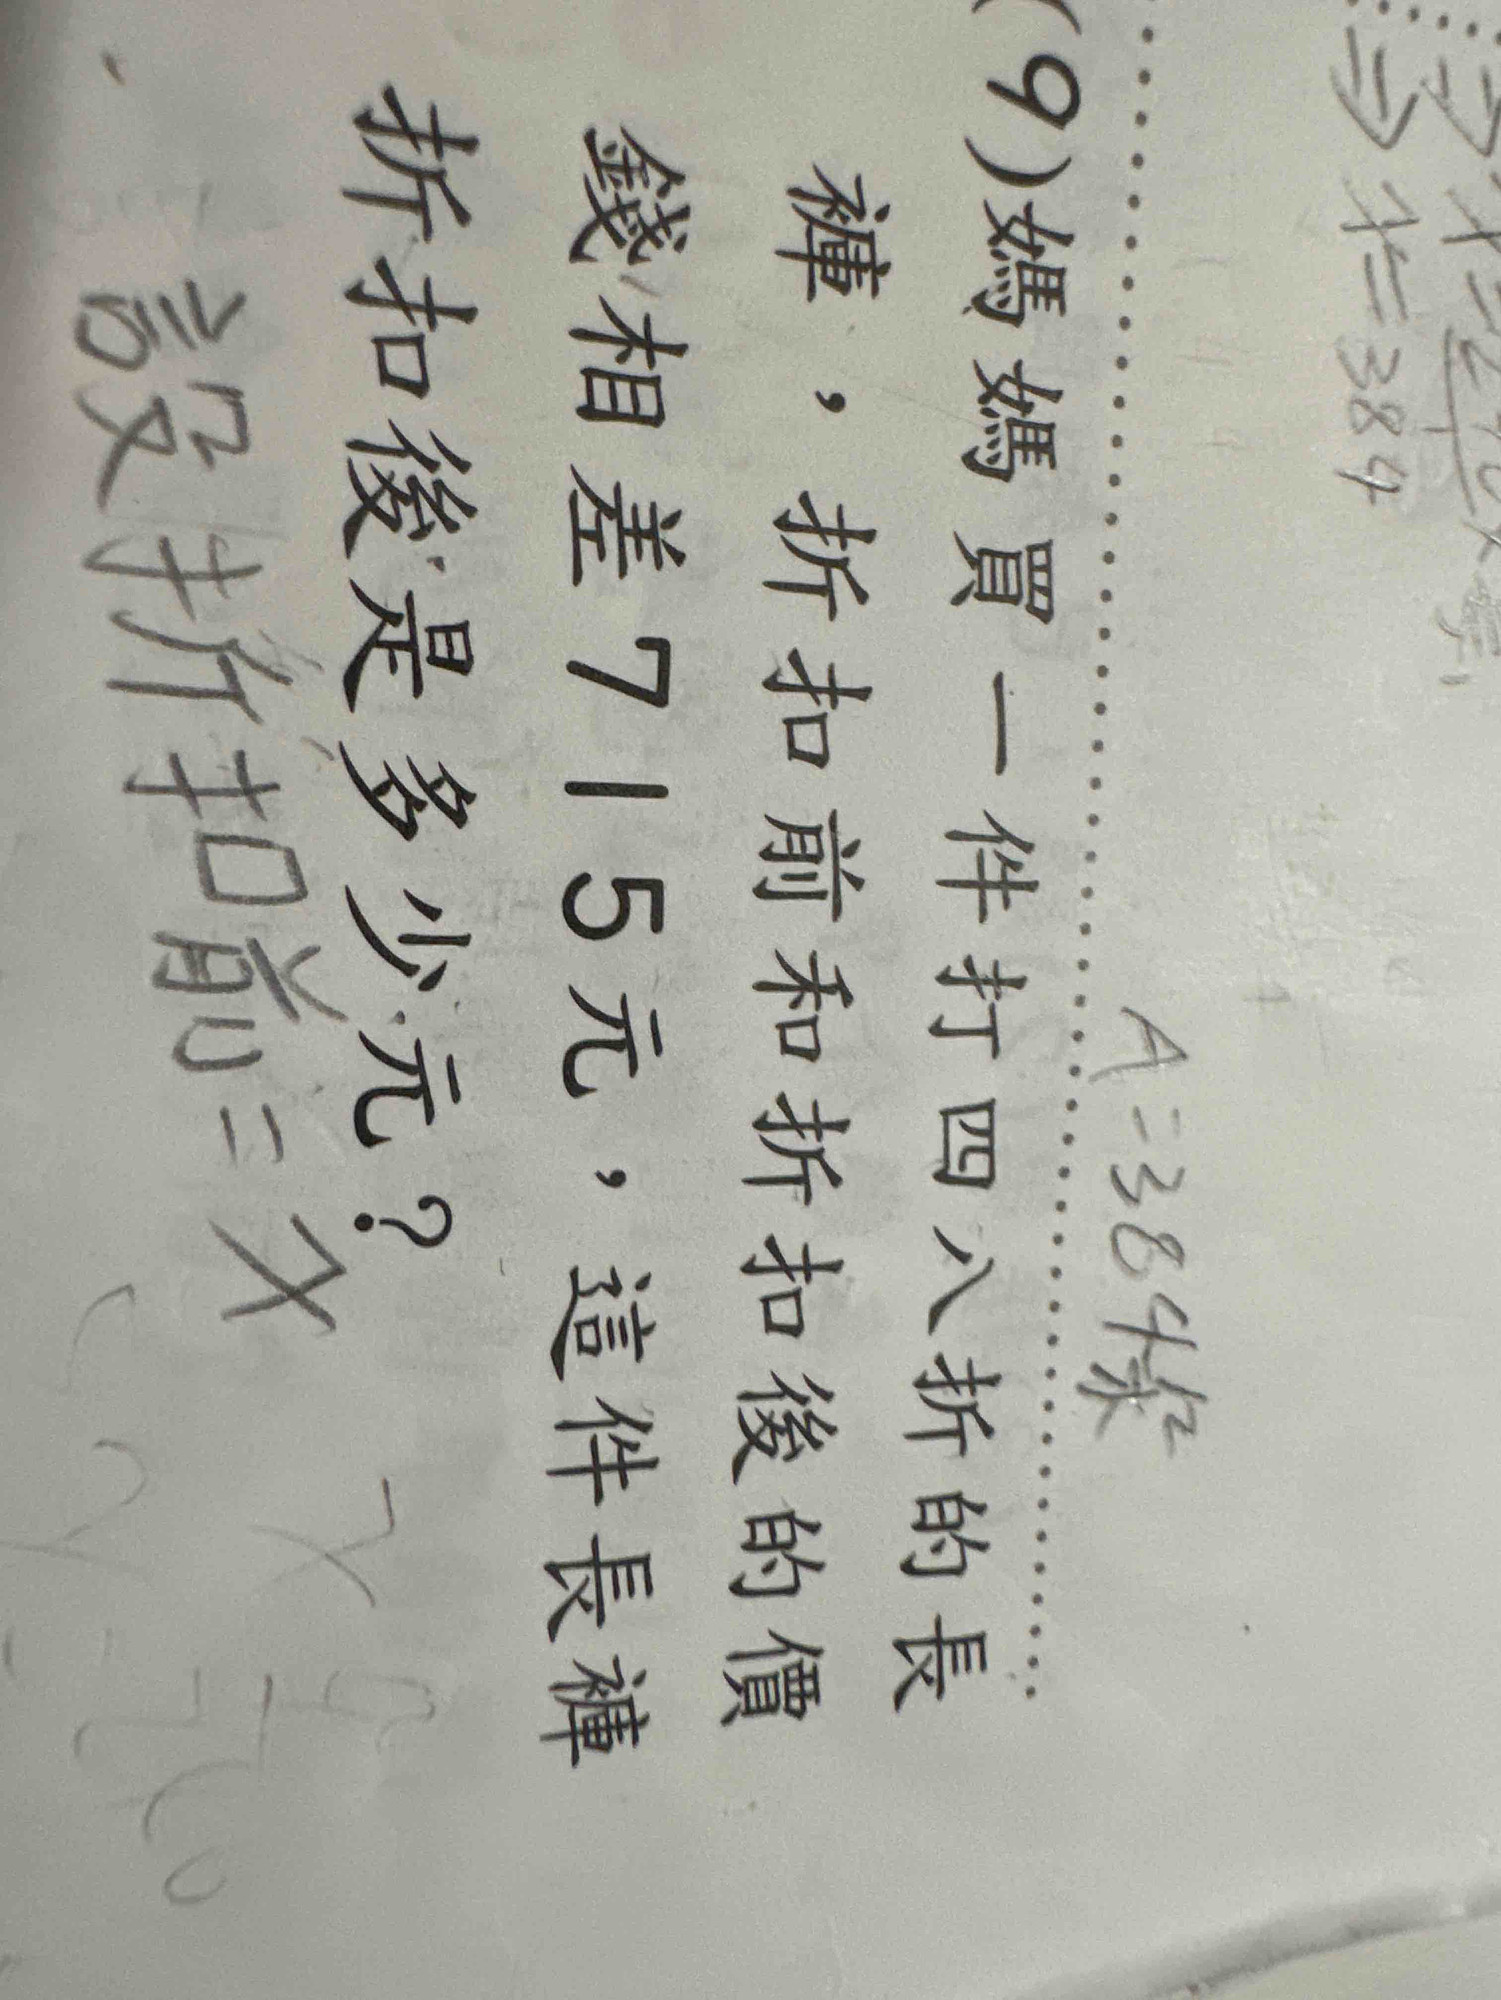 ⇒ 才=384
A=384条
(9)媽媽買一件打四八折的長
褲，折扣前和折扣後的價
錢相差715元，這件長褲
折扣後是多少元？
設折扣前=X